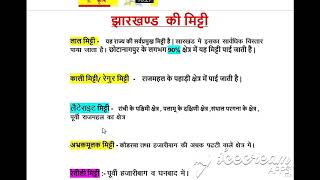 झारखण्ड की मिट्टी
लाल मिट्टी - यह राज्य की सर्वप्रमुख मिट्टी है। झारखण्ड में इसका सार्वधिक विस्तार
पाया जाता है। छोटानागपुर के लगभग 90% क्षेत्र में यह मिट्टी पाई जाती है।
काली मिट्टी/ रेगुर मिट्टी - राजमहल के पहाड़ी क्षेत्र में पाई जाती है।
लैटेराइट मिट्टी - रांची के पश्चिमी क्षेत्र, पलामू के दक्षिणी क्षेत्र, संथाल परगना के क्षेत्र,
पूर्वी राजमहल का क्षेत्र
अभ्रकमूलक मिट्टी - कोडरमा तथा हजारीबाग की अभ्रक पट्टी वाले क्षेत्र में।
रेतीली मिट्टी :- पूर्वी हजारीबाग व धनबाद में।
icecream
APPS